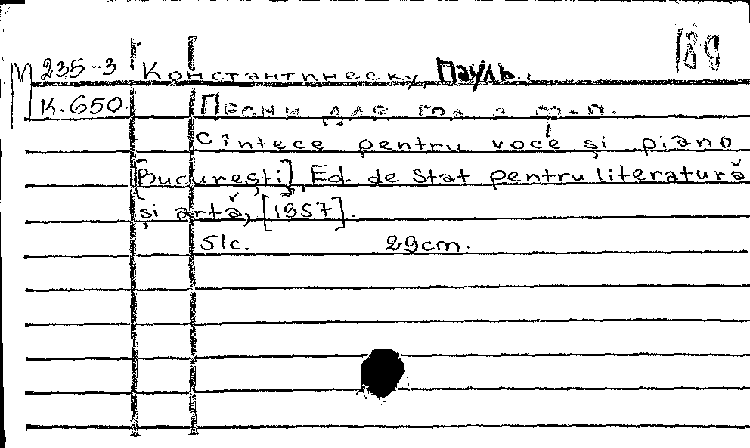 189
М 235-3 Константинеску, Пауль.
К.650. Песни для гол. с ф-п.
Cîntece pentru voce și piano
[București], Ed. de Stat pentru literatură
și artă, [1957].
51c. 29cm.